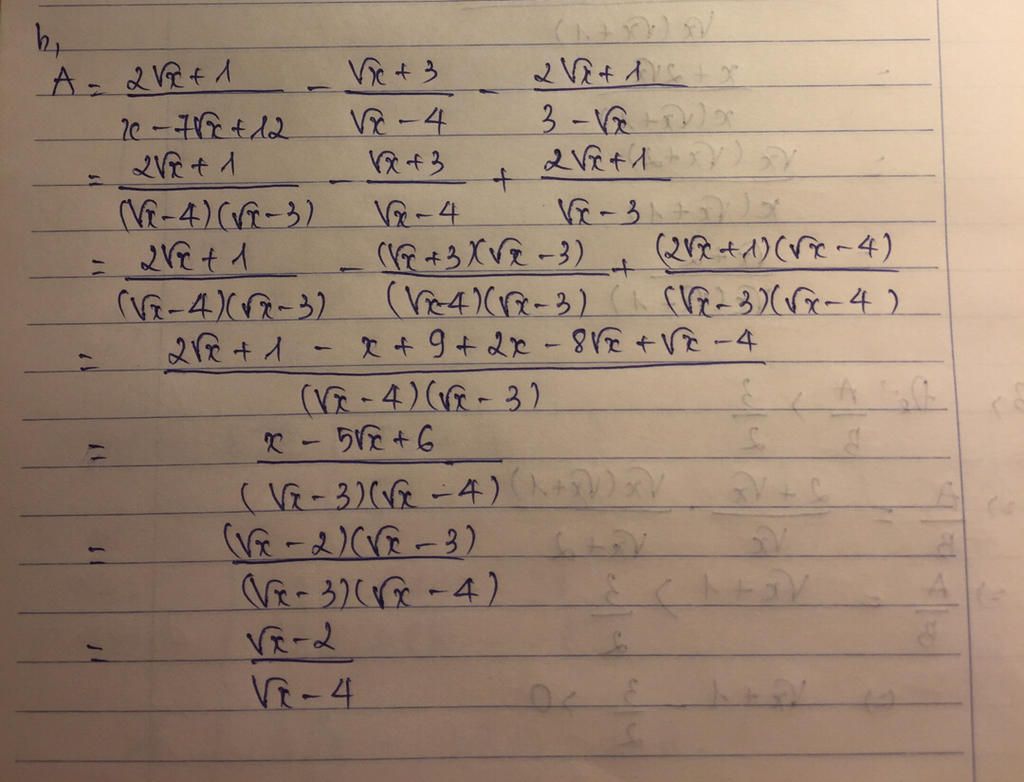 b,
A = (2√x + 1)/(x - 7√x + 12) - (√x + 3)/(√x - 4) - (2√x + 1)/(3 - √x)
= (2√x + 1)/((√x - 4)(√x - 3)) - (√x + 3)/(√x - 4) + (2√x + 1)/(√x - 3)
= (2√x + 1)/((√x - 4)(√x - 3)) - ((√x + 3)(√x - 3))/((√x - 4)(√x - 3)) + ((2√x + 1)(√x - 4))/((√x - 3)(√x - 4))
= (2√x + 1 - x + 9 + 2x - 8√x + √x - 4)/((√x - 4)(√x - 3))
= (x - 5√x + 6)/((√x - 3)(√x - 4))
= ((√x - 2)(√x - 3))/((√x - 3)(√x - 4))
= (√x - 2)/(√x - 4)